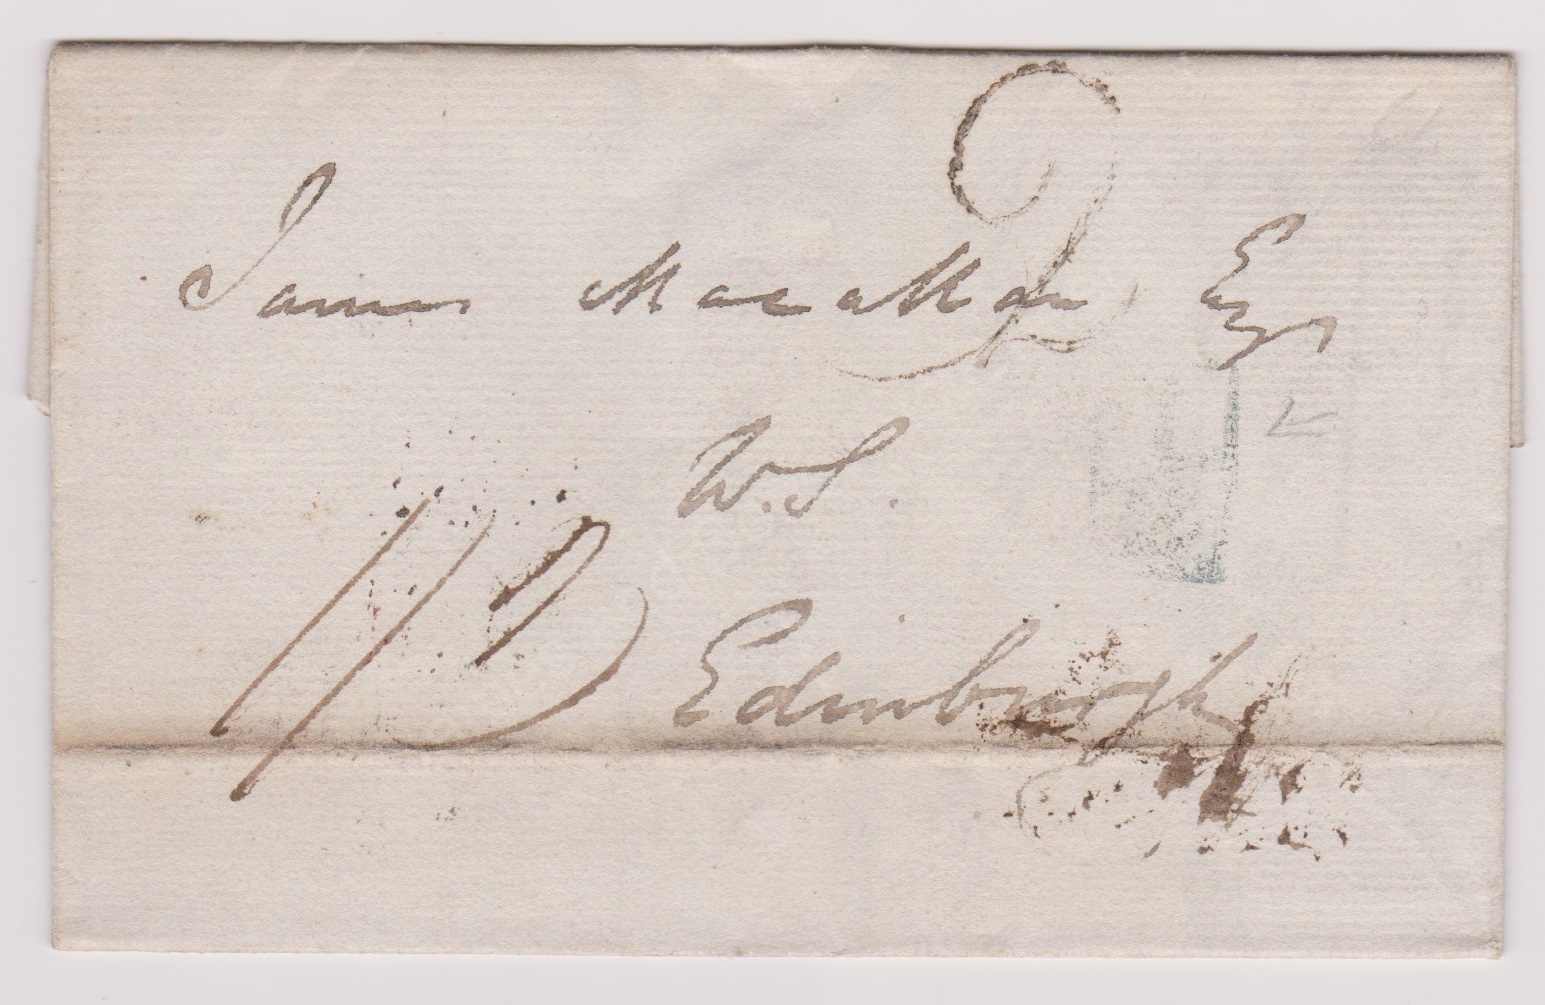 James Macallan Esqr
W.S.
Edinburgh